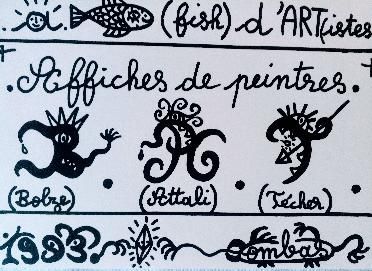 a. (fish) d'ARTistes
. Affiches de peintres .
(Bobze) . (Attali) . (Tscher)
1993. Combas